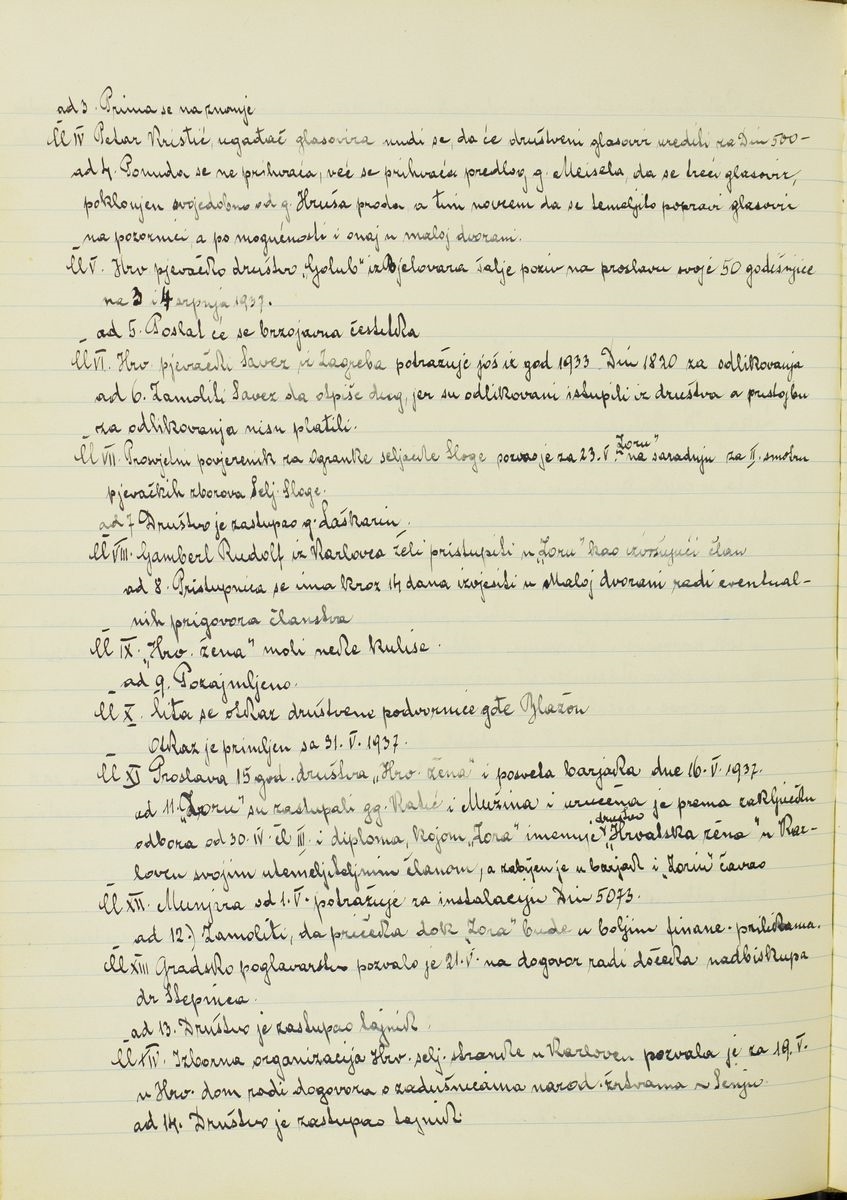 ad 3. Prima se na znanje
Čl IV Petar Kristić, ugađač glasovira nudi se, da će društveni glasovir urediti za Din 500-
ad 4. Ponuda se ne prihvaća, već se prihvaća predlog g. Meisela, da se treći glasovir,
poklonjen svojedobno od g. Hruša proda a tim novcem da se temeljito popravi glasovir
na pozornici a po mogućnosti i onaj u maloj dvorani.
Čl V. Hrv pjevačko društvo „Golub" iz Bjelovara šalje poziv na proslavu svoje 50 godišnjice
na 3 i 4 srpnja 1937.
ad 5. Poslat će se brzojavna čestitka
Čl VI. Hrv. pjevački Savez iz Zagreba potražuje još iz god 1933 Din 1820 za odlikovanja
ad 6. Zamoliti Savez da otpiše dug, jer su odlikovani istupili iz društva a pristojbu
za odlikovanja nisu platili.
Čl VII. Prosvjetni povjerenik za Ogranke seljačke Sloge pozvao je za 23. V. „Zoru" na saradnju za II. smotru
pjevačkih zborova Selj. Sloge.
ad 7 Društvo je zastupao g. Laškarin.
Čl VIII. Gamberl Rudolf iz Karlovca želi pristupiti u „Zoru" kao izvršujući član
ad 8. Pristupnica se ima kroz 14 dana izvjesiti u Maloj dvorani radi eventual-
nih prigovora članstva
Čl IX. „Hrv. žena" moli neke kulise.
ad 9. Pozajmljeno.
Čl X. Čita se otkaz društvene podvornice gđe Blažon
Otkaz je primljen sa 31. V. 1937.
Čl XI Proslava 15 god. društva „Hrv. žena" i posveta barjaka dne 16. V. 1937.
ad 11. „Zoru" su zastupali gg. Katić i Mužina i uručena je prema zaključku
odbora od 30. IV. čl III. i diploma, kojom „Zora" imenuje društvo „Hrvatska žena" u Kar-
lovcu svojim utemeljiteljnim članom, a zabijen je u barjak i „Zorin" čavao
Čl XII. Munjara od 1. V. potražuje za instalaciju Din 5073.
ad 12.) Zamoliti, da pričeka dok „Zora" bude u boljim financ. prilikama.
Čl XIII Gradsko poglavarstvo pozvalo je 21. V. na dogovor radi dočeka nadbiskupa
dr Stepinca.
ad 13. Društvo je zastupao tajnik.
Čl XIV. Izborna organizacija Hrv. selj. stranke u Karlovcu pozvala je za 19. V.
u Hrv. dom radi dogovora o zadušnicama narod. žrtvama u Senju.
ad 14. Društvo je zastupao tajnik.